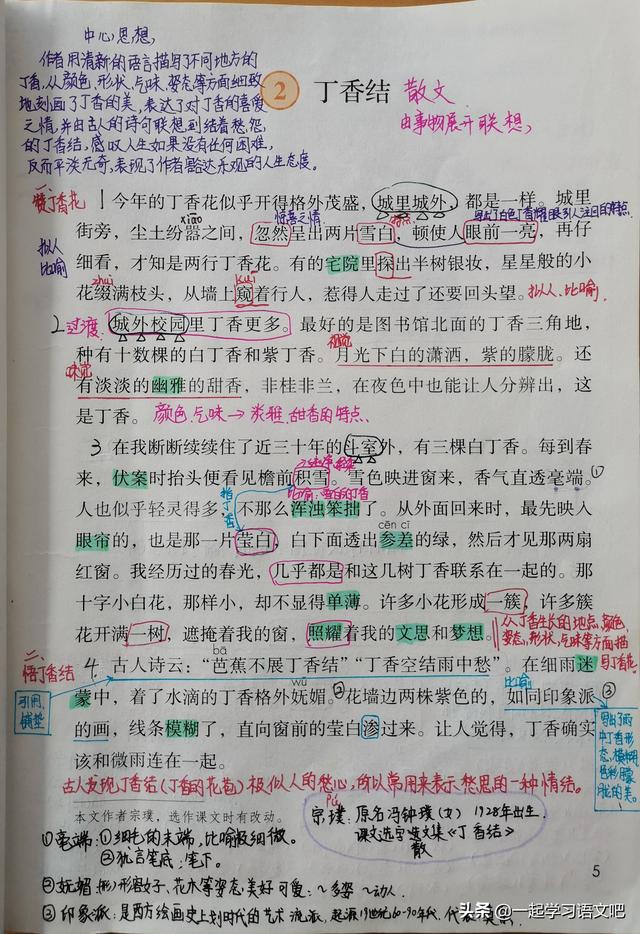 中心思想,
作者用清新的语言描写了不同地方的
丁香,从颜色、形状、气味、姿态等方面细致
地刻画了丁香的美,表达了对丁香的喜爱
之情,并由古人的诗句联想到结着愁怨
的丁香结,感叹人生如果没有任何困难,
反而平淡无奇,表现了作者豁达乐观的人生态度。
2 丁香结 散文
由事物展开联想,
一、赞丁香花
1 今年的丁香花似乎开得格外茂盛,城里城外,都是一样。城里
惊喜之情
xiāo
街旁,尘土纷嚣之间,忽然呈出两片雪白,顿使人眼前一亮,再仔
拟人
比喻
细看,才知是两行丁香花。有的宅院里探出半树银妆,星星般的小
zhuì kuī
花缀满枝头,从墙上窥着行人,惹得人走过了还要回头望。拟人、比喻
2 过渡:城外校园里丁香更多。最好的是图书馆北面的丁香三角地,
视觉
种有十数棵的白丁香和紫丁香。月光下白的潇洒,紫的朦胧。还
味觉
有淡淡的幽雅的甜香,非桂非兰,在夜色中也能让人分辨出,这
是丁香。 颜色、气味→淡雅、甜香的特点
3 在我断断续续住了近三十年的斗室外,有三棵白丁香。每到春
来,伏案时抬头便看见檐前积雪。雪色映进窗来,香气直透毫端。①
人也似乎轻灵得多,不那么浑浊笨拙了。从外面回来时,最先映入
cēn cī
眼帘的,也是那一片莹白,白下面透出参差的绿,然后才见那两扇
红窗。我经历过的春光,几乎都是和这几树丁香联系在一起的。那
十字小白花,那样小,却不显得单薄。许多小花形成一簇,许多簇
花开满一树,遮掩着我的窗,照耀着我的文思和梦想。
从丁香生长的地点、颜色、
姿态、形状、气味等方面描
写丁香花
二、悟丁香结
bā
4. 古人诗云:“芭蕉不展丁香结”“丁香空结雨中愁”。在细雨迷
引用、
铺垫
wǔ
比喻
蒙中,着了水滴的丁香格外妩媚。②花墙边两株紫色的,如同印象派③
的画,线条模糊了,直向窗前的莹白渗过来。让人觉得,丁香确实
该和微雨连在一起。
写出了雨
中丁香形
态、模糊、
色彩朦
胧的美。
古人发现丁香结(丁香的花苞)极似人的愁心,所以常用来表示愁思的一种情结。
本文作者宗璞,选作课文时有改动。
pú
宗璞:原名冯钟璞(女) 1928年出生.
课文选字选文集《丁香结》
散
①毫端:①细毛的末端,比喻极细微。
②犹言笔底;笔下。
②妩媚(形)形容女子、花木等姿态美好可爱:～多姿 ～动人.
③印象派:是西方绘画史上划时代的艺术流派,起源19世纪60-90年代,
5
头条 @一起学习语文吧